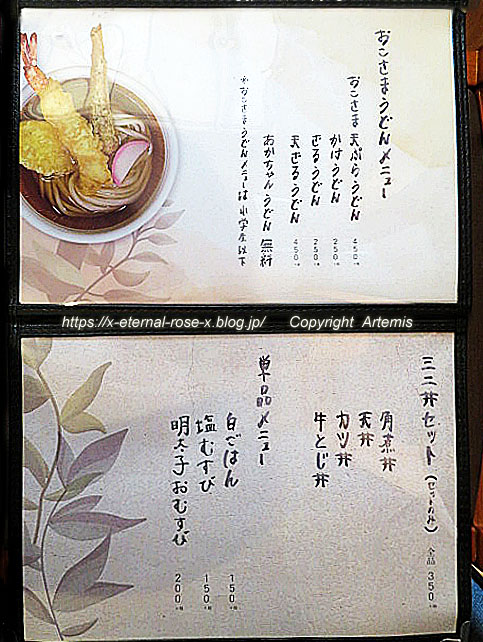 おこさまうどんメニュー
おこさま天ぷらうどん 450
かけうどん 250
ざるうどん 250
天ざるうどん 450
あかちゃんうどん 無料
※おこさまうどんメニューは小学生以下
https://x-eternal-rose-x.blog.jp/ Copyright Artemis
ミニ丼セット(セットのみ) 全品 350
角煮丼
天丼
カツ丼
牛とじ丼
単品メニュー
白ごはん 150
塩むすび 150
明太子おむすび 200